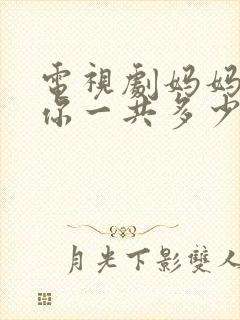 電視劇媽媽
你一共多少
月光下影雙人